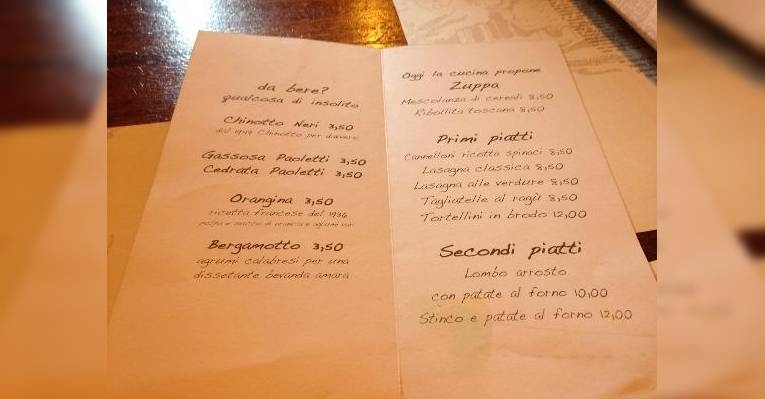 da bere?
qualcosa di insolito
Chinotto Neri 3,50
dal 1949 Chinotto per davvero
Gassosa Paoletti 3,50
Cedrata Paoletti 3,50
Orangina 3,50
ricetta francese del 1936
polpa e succo di arancia e agrumi vari
Bergamotto 3,50
agrumi calabresi per una
dissetante bevanda amara
Oggi la cucina propone
Zuppa
Mescolanza di cereali 8,50
Ribollita toscana 8,50
Primi piatti
Cannelloni ricotta spinaci 8,50
Lasagna classica 8,50
Lasagna alle verdure 8,50
Tagliatelle al ragù 8,50
Tortellini in brodo 12,00
Secondi piatti
Lombo arrosto
con patate al forno 10,00
Stinco e patate al forno 12,00